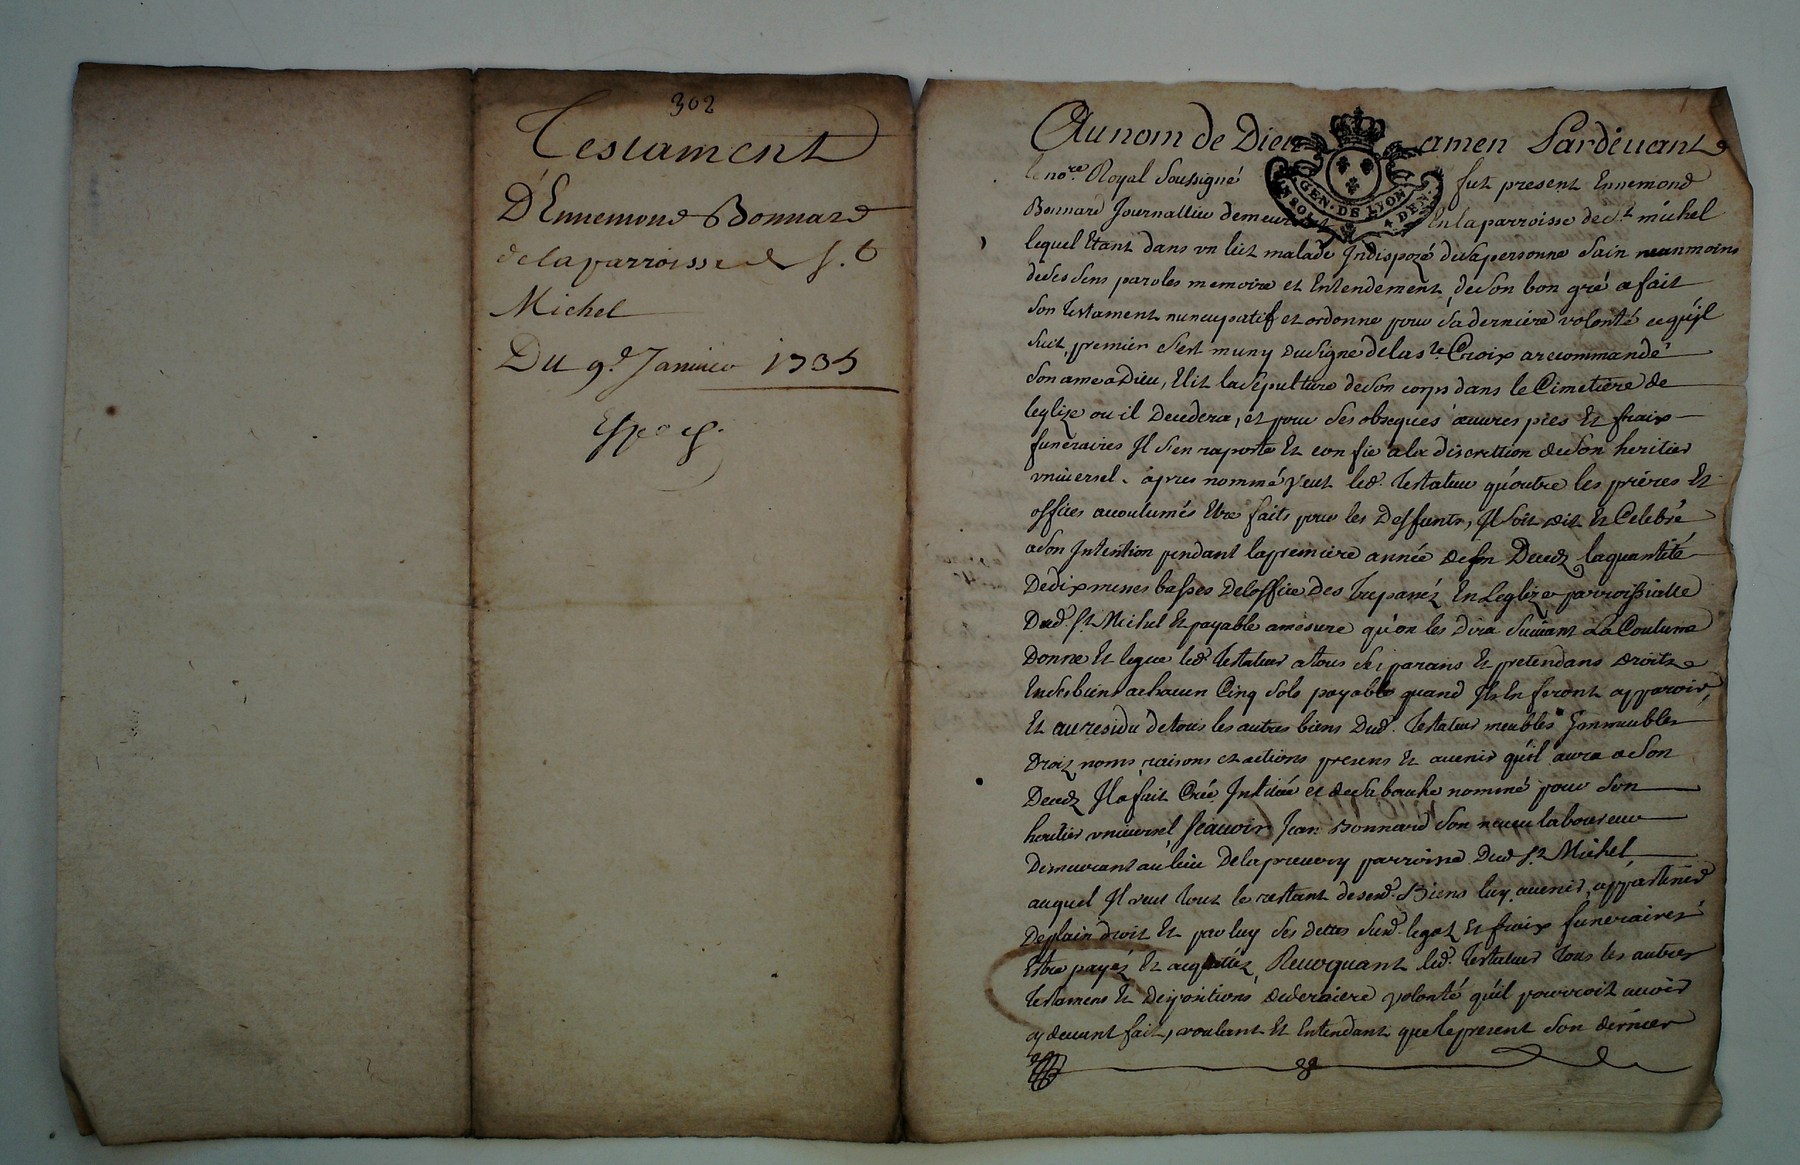 302
Testament
D'Ennemond Bonnard
de la parroisse de S.t
Michel
Du 9.e Janvier 1735
Au nom de Dieu amen Pardevant
le no.re Royal Soussigné fut present Ennemond
Bonnard Journallier demeurant En la parroisse de S.t michel
lequel Etant dans un lict malade Indispozé de sa personne Sain neanmoins
de ses Sens paroles memoire et Entendement, de Son bon gré a fait
Son Testament nuncupatif et ordonne pour Sa derniere volonté ce qu'il
Suit, premier S'est muny du Signe de la s.te Croix a recommandé
Son ame a Dieu, Elit la Sepulture de Son corps dans le Cimetiere de
leglize ou il Decedera, et pour Ses obseques œuvres pies Et fraix
funeraires Il S'en raporte Et confie a la discrettion de Son heritier
universel apres nommé veut led. Testateur qu'outre les prieres Et
offices acoutumés Etre faits pour les Deffunts, Il Soit dit Et Celebré
a Son Intention pendant la premiere année de Son Decedz la quantité
De dix messes basses De l'office Des Trepassez En Leglize parroissialle
Dud. S.t Michel Et payable amesure qu'on les Dira Suivant La Coutume
Donne Et legue led. Testateur a tous Ses parans Et pretendans Droits
En Ses biens a chacun Cinq Sols payable quand Ils En feront apparoir,
Et au residu de tous les autres biens Dud. Testateur meubles Immeubles
Droitz noms, raisons et actions presens Et avenir qu'il aura a Son
Decedz Il a fait Créé Institué et de Sa bouche nommé pour Son
heritier universel, Scavoir Jean Bonnard Son neveu laboureur
Demeurant au lieu De la parroisse Dud. S.t Michel
auquel Il veut tout le restant de sesd. Biens luy avenir, appartenir
De plain droit Et par luy Ses dettes Susd. legatz Et fraix funeraires
Estre payés Et acquittés, Revoquant led. Testateur tous les autres
Testamens Et Dispositions de derniere volonté qu'il pourroit avoir
cy devant fait, voulant Et Entendant que le present Son dernier
GEN. DE LYON